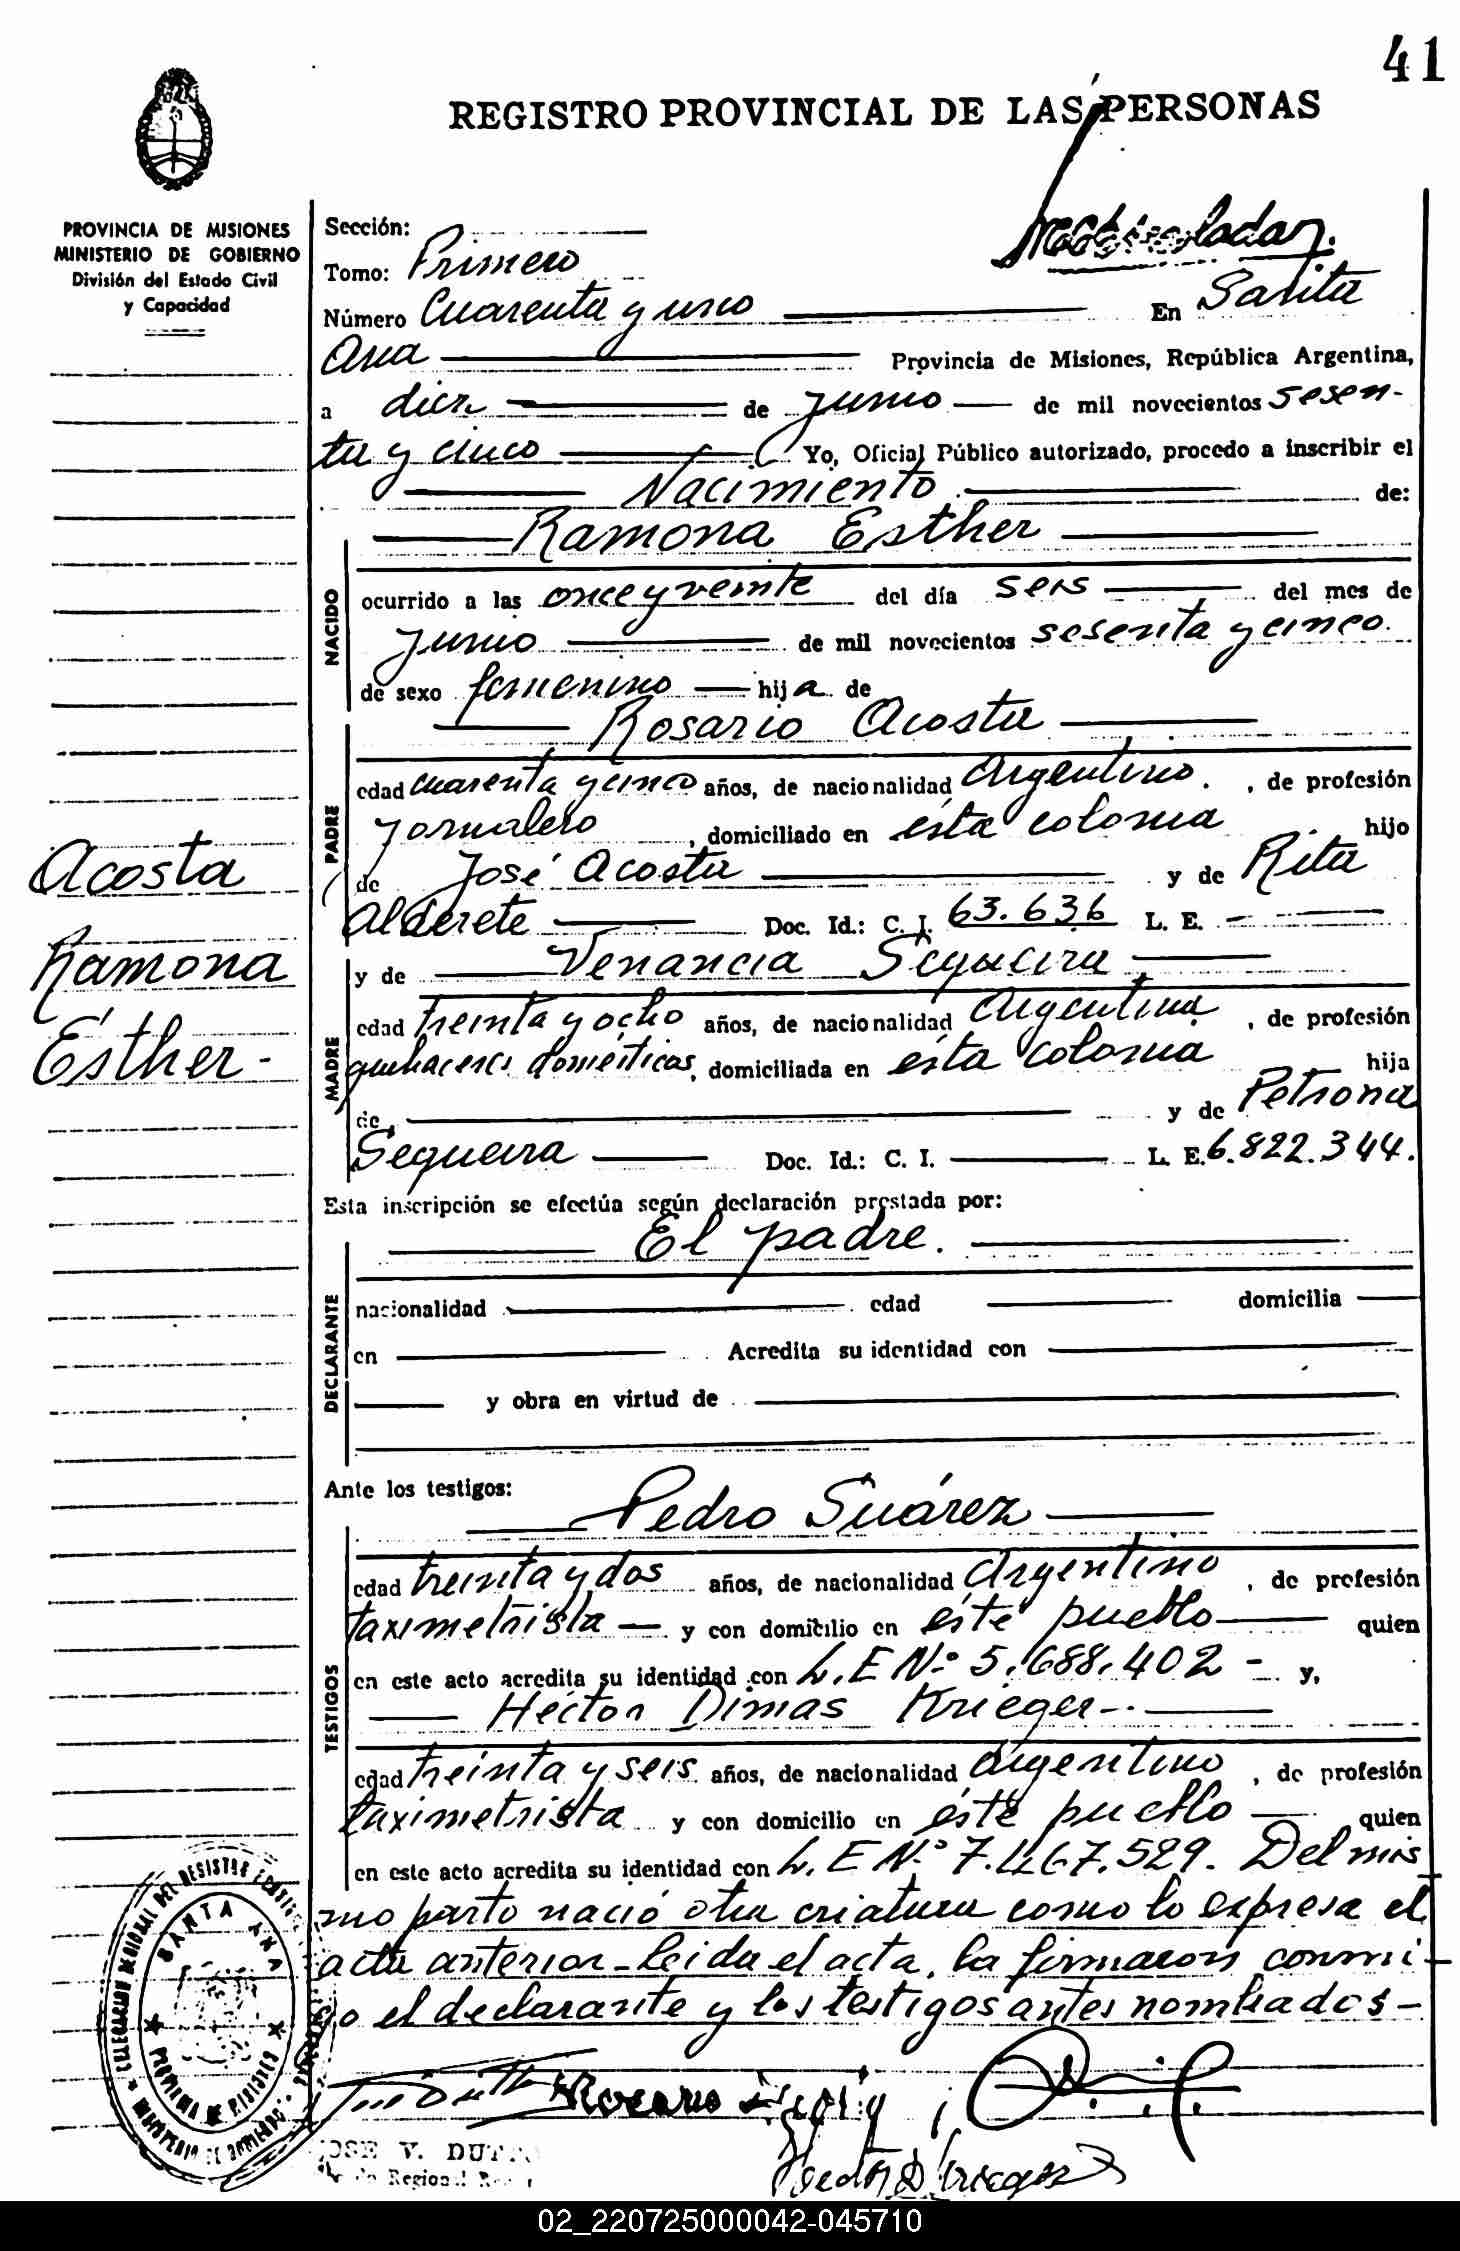 41
REGISTRO PROVINCIAL DE LAS PERSONAS
PROVINCIA DE MISIONES
MINISTERIO DE GOBIERNO
División del Estado Civil
y Capacidad
Sección:
Tomo: Primero
Número Cuarenta y uno En Santa
Ana Provincia de Misiones, República Argentina,
a diez de junio de mil novecientos sesen-
ta y cinco Yo, Oficial Público autorizado, procedo a inscribir el
Nacimiento de:
Ramona Esther
NACIDO
ocurrido a las once y veinte del día seis del mes de
junio de mil novecientos sesenta y cinco.
de sexo femenino hija de
Rosario Acosta
PADRE
edad cuarenta y cinco años, de nacionalidad Argentino. , de profesión
jornalero , domiciliado en ésta colonia hijo
de José Acosta y de Rita
Alderete Doc. Id.: C. I. 63.636 L. E.
y de Venancia Sequeira
MADRE
edad treinta y ocho años, de nacionalidad Argentina , de profesión
quehaceres domésticos, domiciliada en ésta colonia hija
de y de Petrona
Sequeira Doc. Id.: C. I. L. E. 6.822.344.
Esta inscripción se efectúa según declaración prestada por:
El padre.
DECLARANTE
nacionalidad edad domicilia
en Acredita su identidad con
y obra en virtud de
Ante los testigos:
Pedro Suárez
TESTIGOS
edad treinta y dos años, de nacionalidad Argentino , de profesión
taximetrista y con domicilio en éste pueblo quien
en este acto acredita su identidad con L. E Nº 5.688.402 - y,
Héctor Dimas Krieger-.
edad treinta y seis años, de nacionalidad argentino , de profesión
taximetrista y con domicilio en éste pueblo quien
en este acto acredita su identidad con L. E Nº 7.467.529. Del mis
mo parto nació otra criatura como lo expresa el
acta anterior - Leida el acta, la firmaron conmi-
go el declarante y los testigos antes nombrados-
Acosta
Ramona
Esther-
SANTA ANA
PROVINCIA DE MISIONES
Rosario
JOSE V. DUT
Regional
02_220725000042-045710